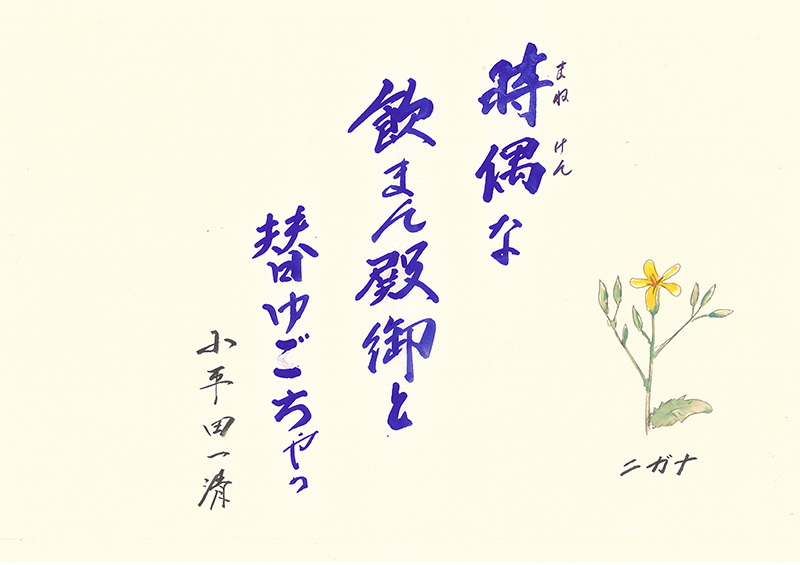 時偶な
まねけん
飲まん殿御と
替ゆごちやっ
小平田一清
ニガナ